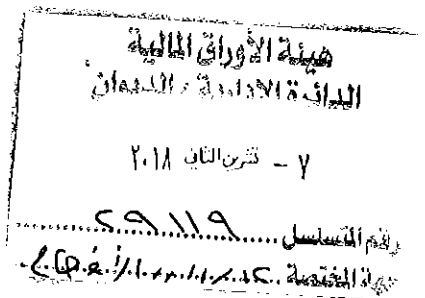 هيئة الأوراق المالية
الدائرة الادارية / الديوان
٧ - تشرين الثاني ٢٠١٨
رقم التسلسل ٢٩١١٩
الجهة المختصة